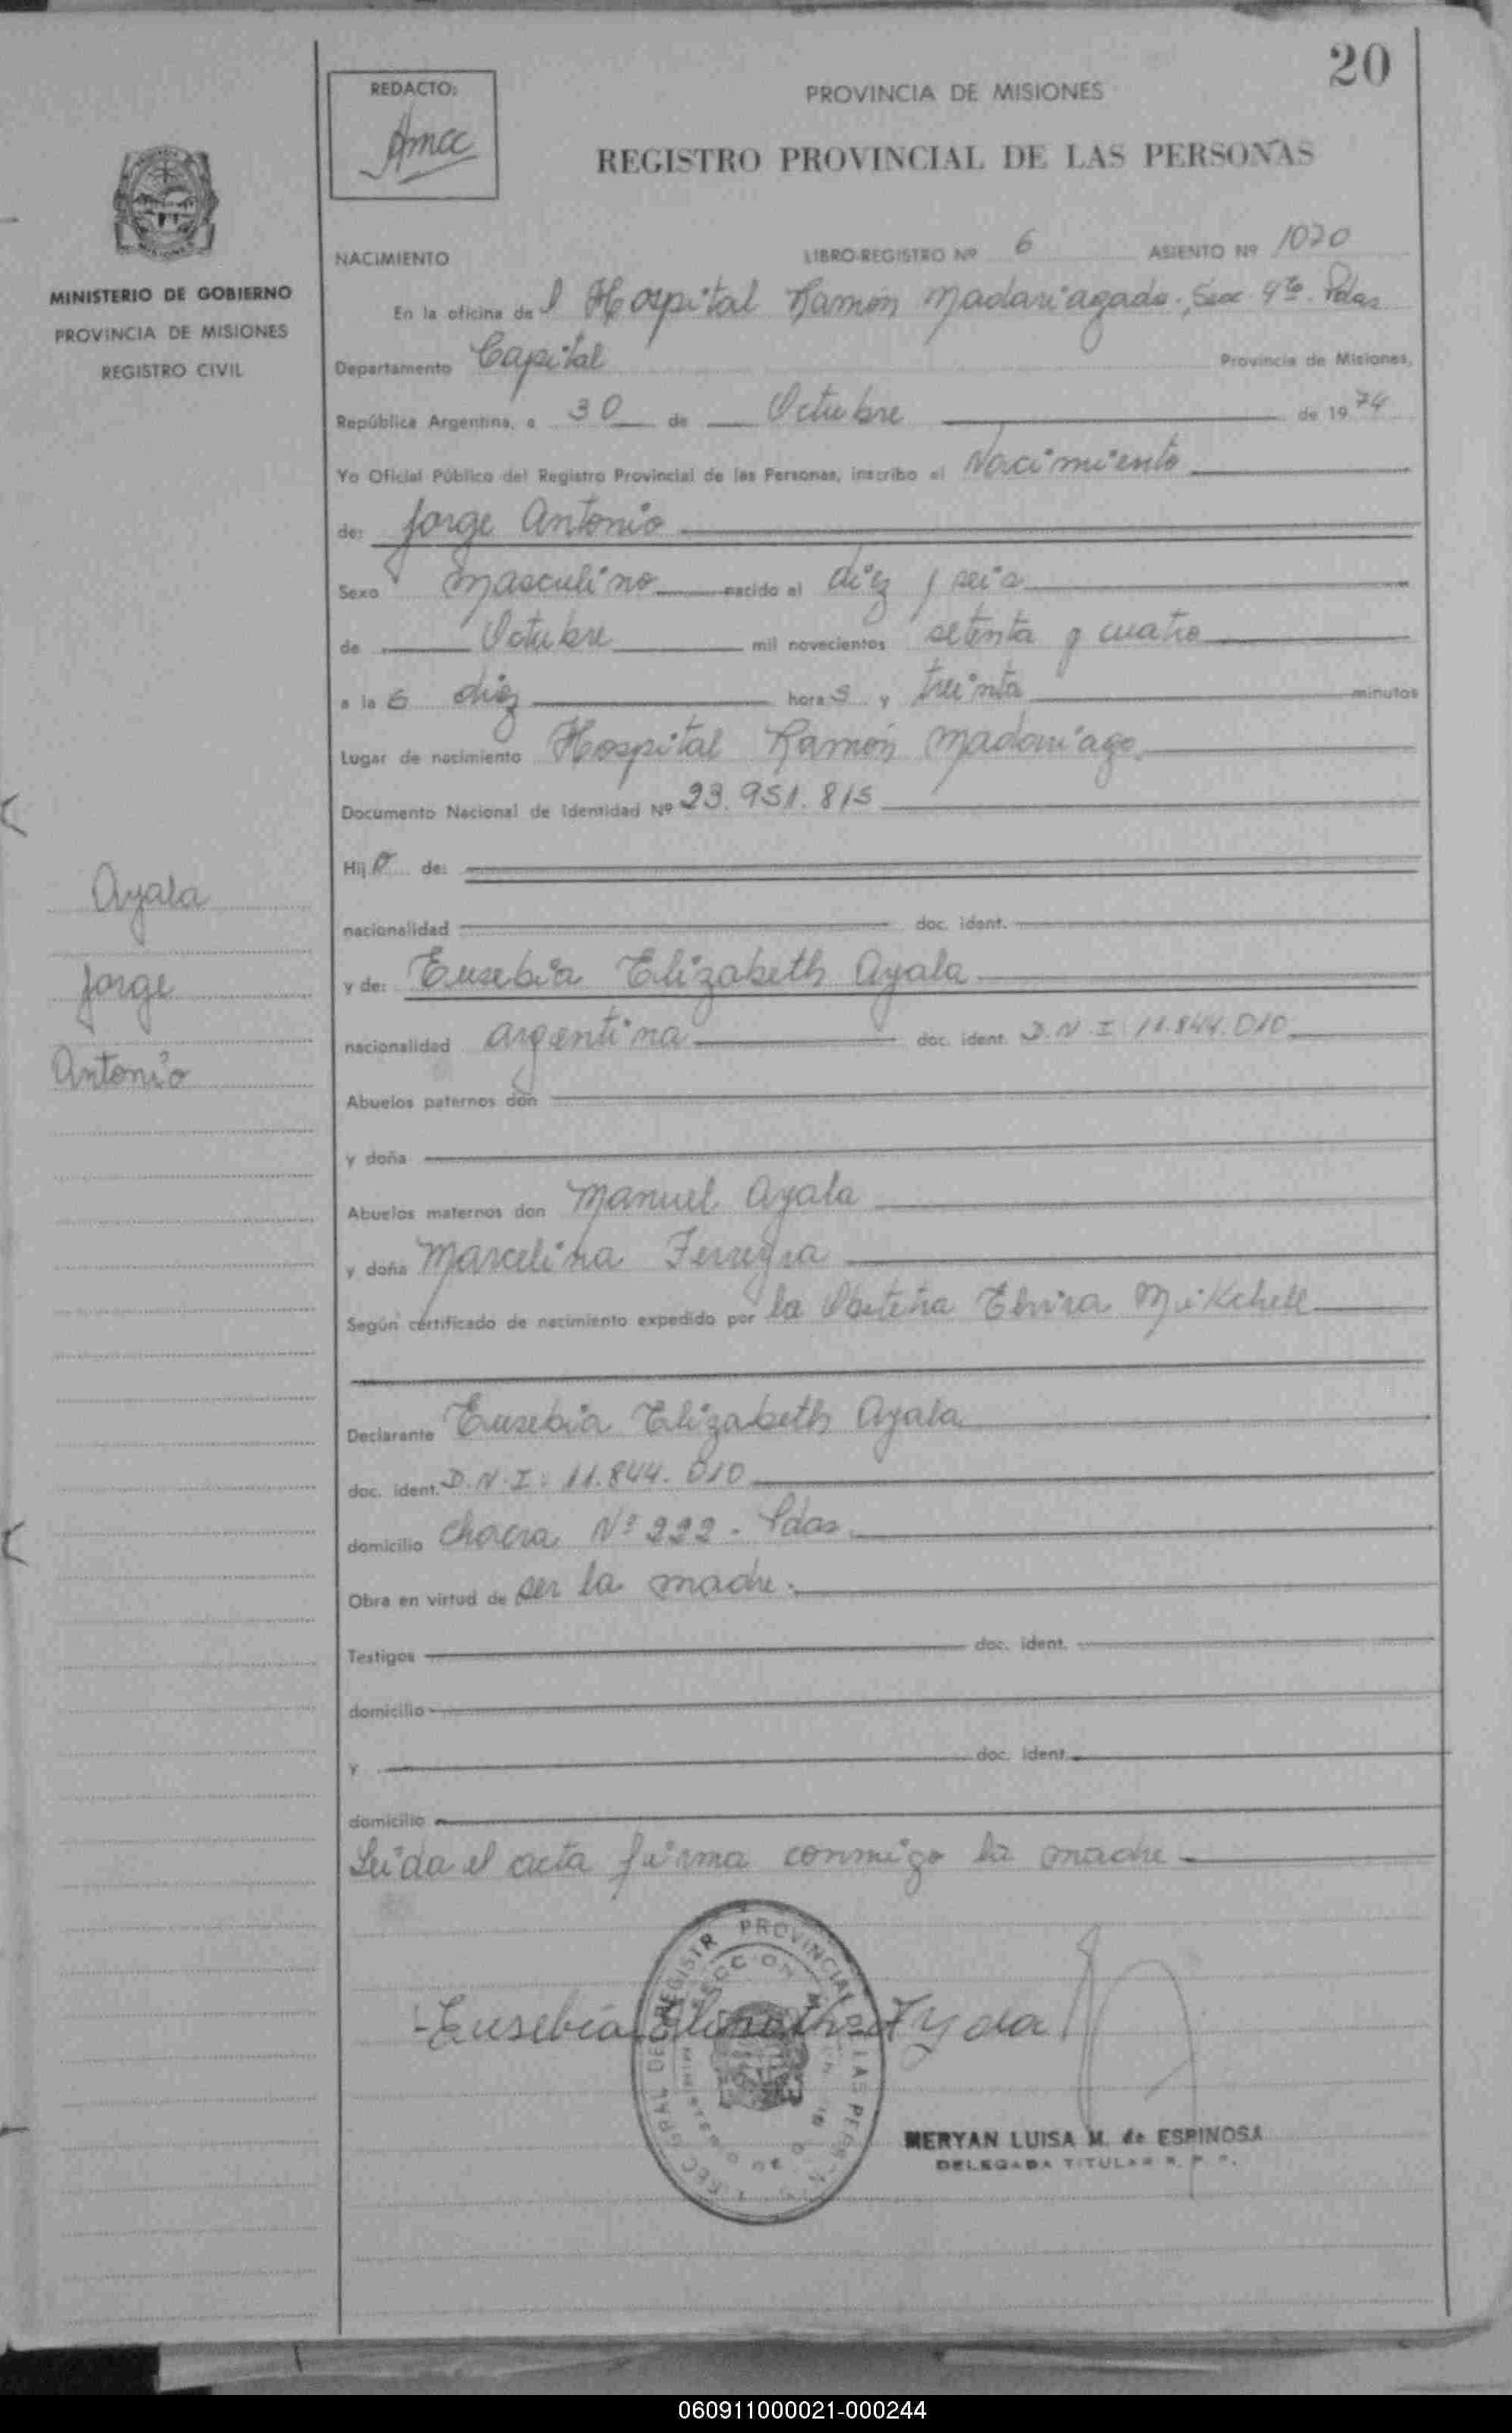 20
REDACTO:
Amcc
PROVINCIA DE MISIONES
REGISTRO PROVINCIAL DE LAS PERSONAS
MINISTERIO DE GOBIERNO
PROVINCIA DE MISIONES
REGISTRO CIVIL
NACIMIENTO LIBRO-REGISTRO Nº 6 ASIENTO Nº 1070
En la oficina del Hospital Ramón Madariagada, Secc. 4ta. Pdas
Departamento Capital Provincia de Misiones,
República Argentina, a 30 de Octubre de 1974
Yo Oficial Público del Registro Provincial de las Personas, inscribo el Nacimiento
de: Jorge Antonio
Sexo Masculino nacido el diez y seis
de Octubre mil novecientos setenta y cuatro
a las diez horas y treinta minutos
Lugar de nacimiento Hospital Ramón Madariaga.
Documento Nacional de Identidad Nº 23.951.815
Hijo de:
nacionalidad doc. ident.
y de: Eusebia Elizabeth Ayala
nacionalidad argentina doc. ident. D.N.I. 11.844.010
Abuelos paternos don
y doña
Abuelos maternos don Manuel Ayala
y doña Marcelina Ferreyra
Según certificado de nacimiento expedido por la Parteña Elvira
Declarante Eusebia Elizabeth Ayala
doc. ident. D.N.I. 11.844.010
domicilio Chacra Nº 222 - Pdas.
Obra en virtud de ser la madre.
Testigos doc. ident.
domicilio
y doc. ident.
domicilio
Leida el acta firma conmigo la madre
Ayala
Jorge
Antonio
Eusebia Elizabeth Ayala
MERYAN LUISA M. de ESPINOSA
DELEGADA TITULAR R. P. P.
060911000021-000244